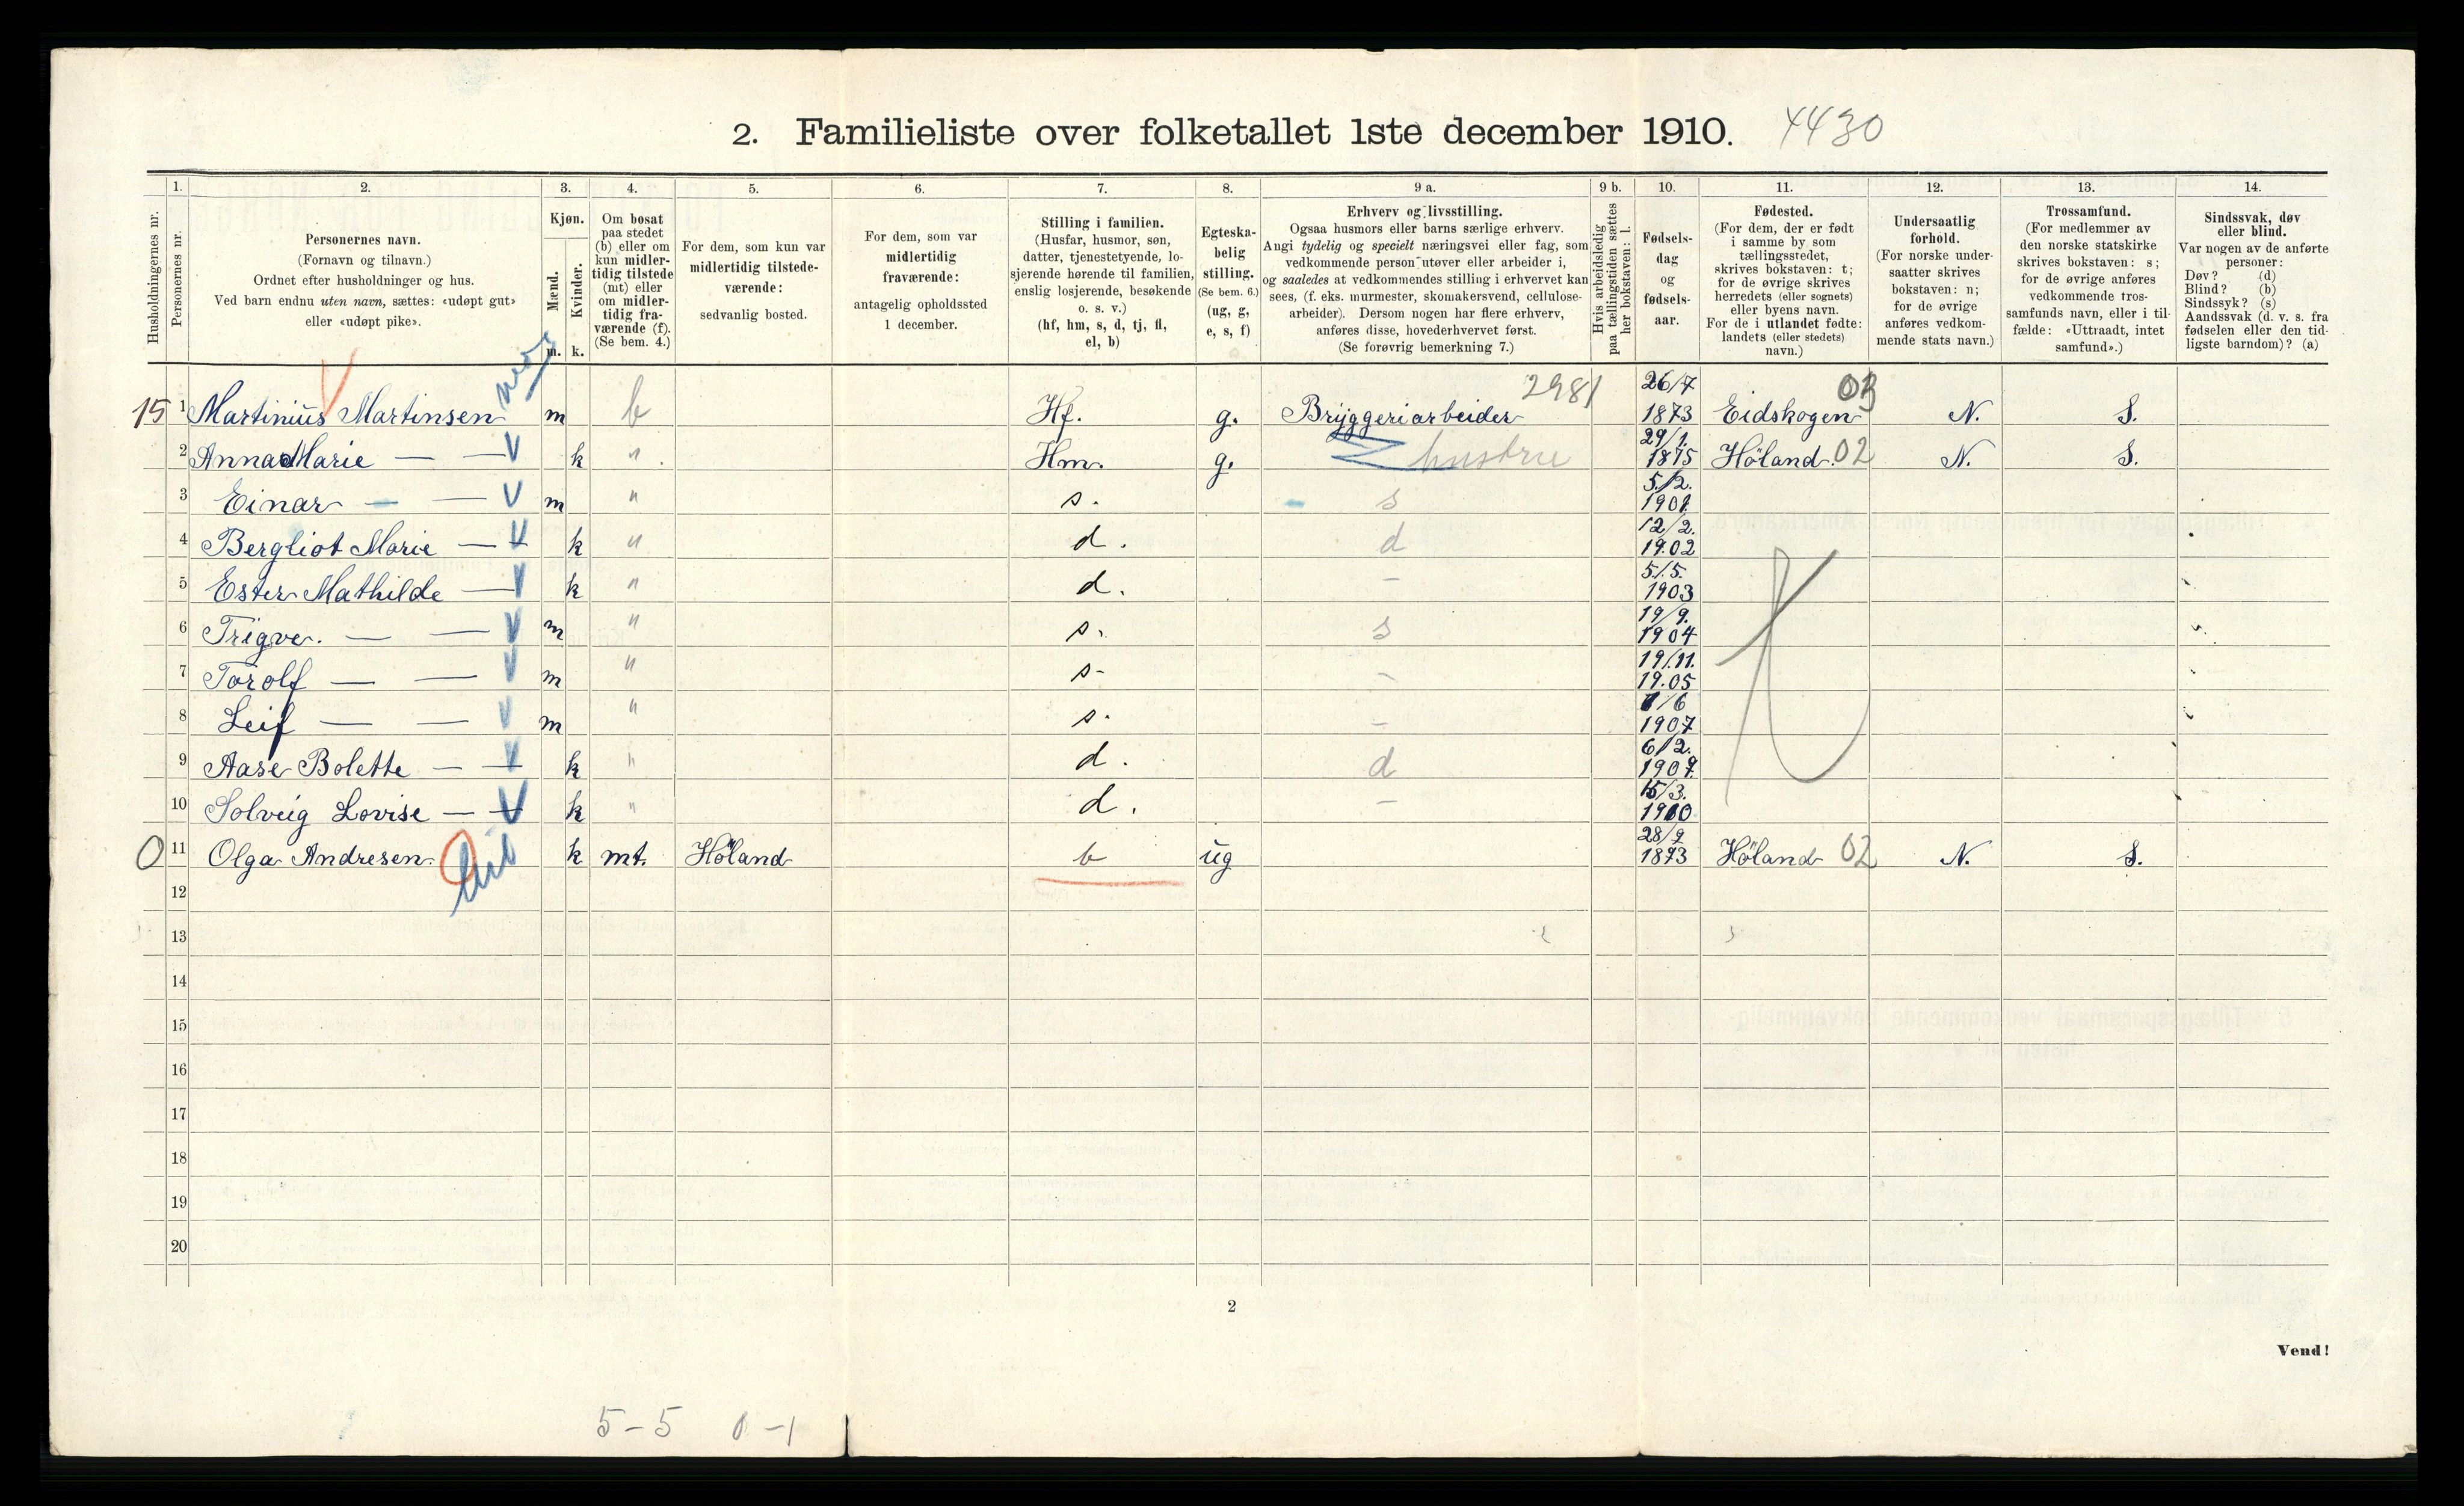 2. Familieliste over folketallet 1ste december 1910. 4430
Husholdningernes nr.
1. Personernes nr.
2. Personernes navn.
(Fornavn og tilnavn.)
Ordnet efter husholdninger og hus.
Ved barn endnu uten navn, sættes: «udøpt gut»
eller «udøpt pike».
3. Kjøn.
Mænd. m.
Kvinder. k.
4. Om bosat
paa stedet
(b) eller om
kun midler-
tidig tilstede
(mt) eller
om midler-
tidig fra-
værende (f).
(Se bem. 4.)
5. For dem, som kun var
midlertidig tilstede-
værende:
sedvanlig bosted.
6. For dem, som var
midlertidig
fraværende:
antagelig opholdssted
1 december.
7. Stilling i familien.
(Husfar, husmor, søn,
datter, tjenestetyende, lo-
sjerende hørende til familien,
enslig losjerende, besøkende
o. s. v.)
(hf, hm, s, d, tj, fl,
el, b)
8. Egteska-
belig
stilling.
(Se bem. 6.)
(ug, g,
e, s, f)
9 a. Erhverv og livsstilling.
Ogsaa husmors eller barns særlige erhverv.
Angi tydelig og specielt næringsvei eller fag, som
vedkommende person utøver eller arbeider i,
og saaledes at vedkommendes stilling i erhvervet kan
sees, (f. eks. murmester, skomakersvend, cellulose-
arbeider). Dersom nogen har flere erhverv,
anføres disse, hovederhvervet først.
(Se forøvrig bemerkning 7.)
9 b. Hvis arbeidsledig
paa tællingstiden sættes
her bokstaven: l.
10. Fødsels-
dag
og
fødsels-
aar.
11. Fødested.
(For dem, der er født
i samme by som
tællingsstedet,
skrives bokstaven: t;
for de øvrige skrives
herredets (eller sognets)
eller byens navn.
For de i utlandet fødte:
landets (eller stedets)
navn.)
12. Undersaatlig
forhold.
(For norske under-
saatter skrives
bokstaven: n;
for de øvrige
anføres vedkom-
mende stats navn.)
13. Trossamfund.
(For medlemmer av
den norske statskirke
skrives bokstaven: s;
for de øvrige anføres
vedkommende tros-
samfunds navn, eller i til-
fælde: «Uttraadt, intet
samfund».)
14. Sindssvak, døv
eller blind.
Var nogen av de anførte
personer:
Døv? (d)
Blind? (b)
Sindssyk? (s)
Aandssvak (d. v. s. fra
fødselen eller den tid-
ligste barndom)? (a)
15 1 Martinius Martinsen m b Hf. g. Bryggeriarbeider 2981 26/7 1873 Eidskogen 03 N. S.
2 Anna Marie — V k " Hm. g. hustru 29/1. 1875 Höland. 02 N. S.
3 Einar — — V m " s. s 5/2. 1901.
4 Bergliot Marie — V k " d. d 12/2. 1902
5 Ester Mathilde — V k " d. – 5/5. 1903
6 Trigve. — — V m " s. s 19/9. 1904
7 Torolf — — V m " s- – 19/11. 1905
8 Leif — — V m " s. – 1/6 1907
9 Aase Bolette — V k " d. d 6/2. 1909.
10 Solveig Lovise — V k " d. – 15/3. 1910 t
0 11 Olga Andresen. k mt. Höland b ug 28/9 1873 Höland 02 N. S.
12
13
14
15
16
17
18
19
20
2
Vend!
5-5 0-1